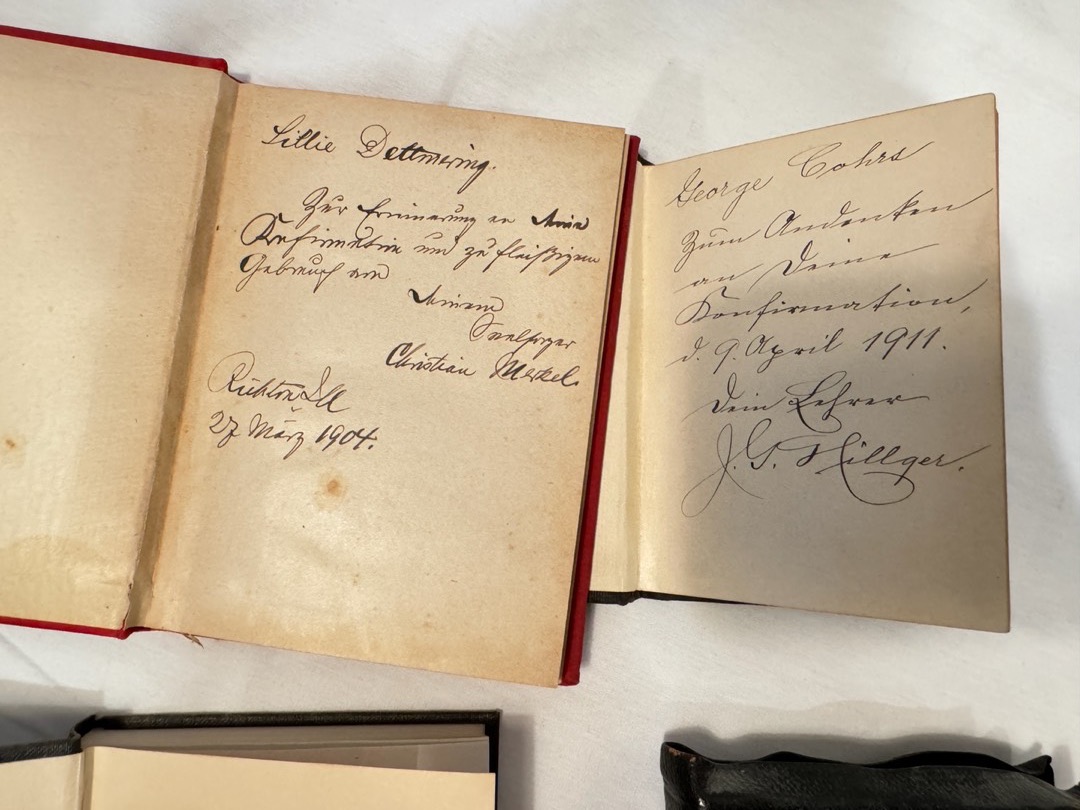 Lillie Dettmering.
Zur Erinnerung an Deine
Konfirmation und zu fleißigem
Gebrauch von
Deinem
Seelsorger
Christian Merkel.
Richton Ill
27 März 1904.
George Cohrs
Zum Andenken
an Deine
Konfirmation,
d. 9. April 1911.
Dein Lehrer
J. G. Hillger.